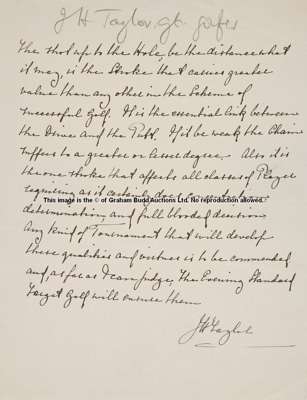 J H Taylor, gt. golfer
The shot up to the Hole, be the distance what
it may, is the Stroke that assumes greater
value than any other in the Scheme of
successful Golf. It is the essential link between
the Drive and the Putt. If it be weak the Chain
suffers to a greater or lesser degree. Also it is
the one stroke that affects all classes of Player
requiring as it certainly does
This image is the © of Graham Budd Auctions Ltd. No reproduction allowed.
determination, and full blooded decision
Any kind of Tournament that will develop
these qualities and virtues is to be commended
and as far as I can judge, The Evening Standard
Target Golf will ensure them
JH Taylor